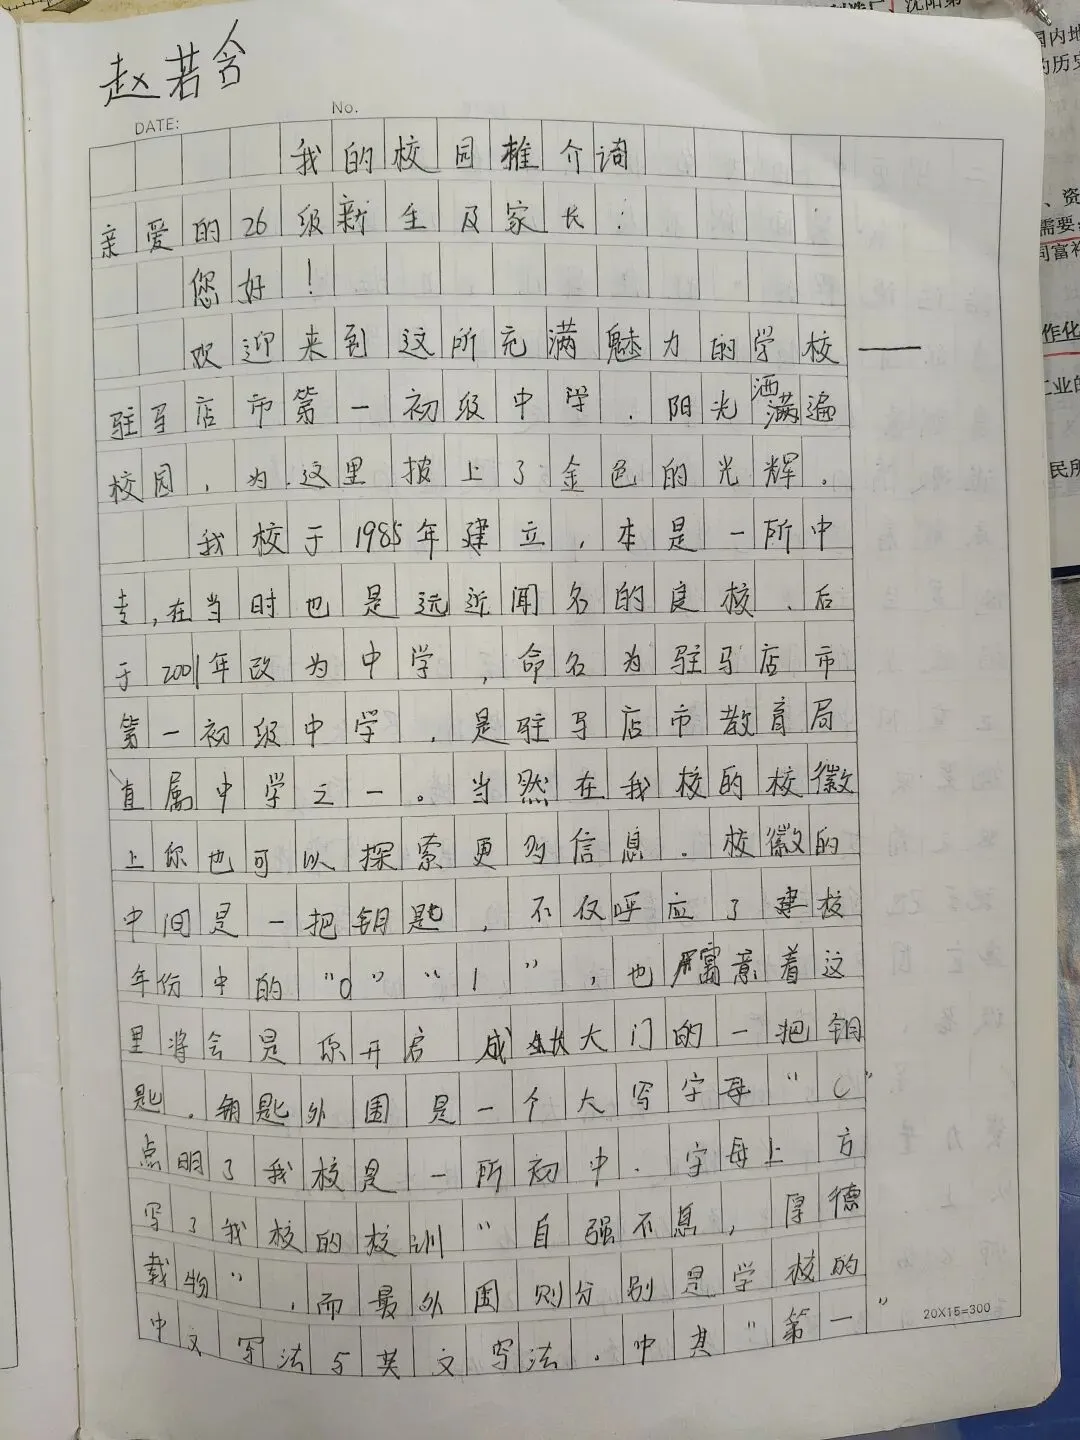 赵若含
DATE:
No.
我的校园推介词
亲爱的26级新生及家长：
您好！
欢迎来到这所充满魅力的学校——
驻马店市第一初级中学.阳光洒满遍
校园,为这里披上了金色的光辉.
我校于1985年建立,本是一所中
专,在当时也是远近闻名的良校、后
于2001年改为中学,命名为驻马店市
第一初级中学.是驻马店市教育局
直属中学之一。当然在我校的校徽
上你也可以探索更多信息.校徽的
中间是一把钥匙,不仅呼应了建校
年份中的“0”“1”,也寓意着这
里将会是你开启成大门的一把钥
匙.钥匙外围是一个大写字母“C”
点明了我校是一所初中.字母上方
写了我校的校训“自强不息,厚德
载物”,而最外围则分别是学校的
中文写法与英文写法.中其“第一”
20X15=300
制造厂
沈阳第
国内地
的历史
、资
需要
同富裕
作化
工业的
民所